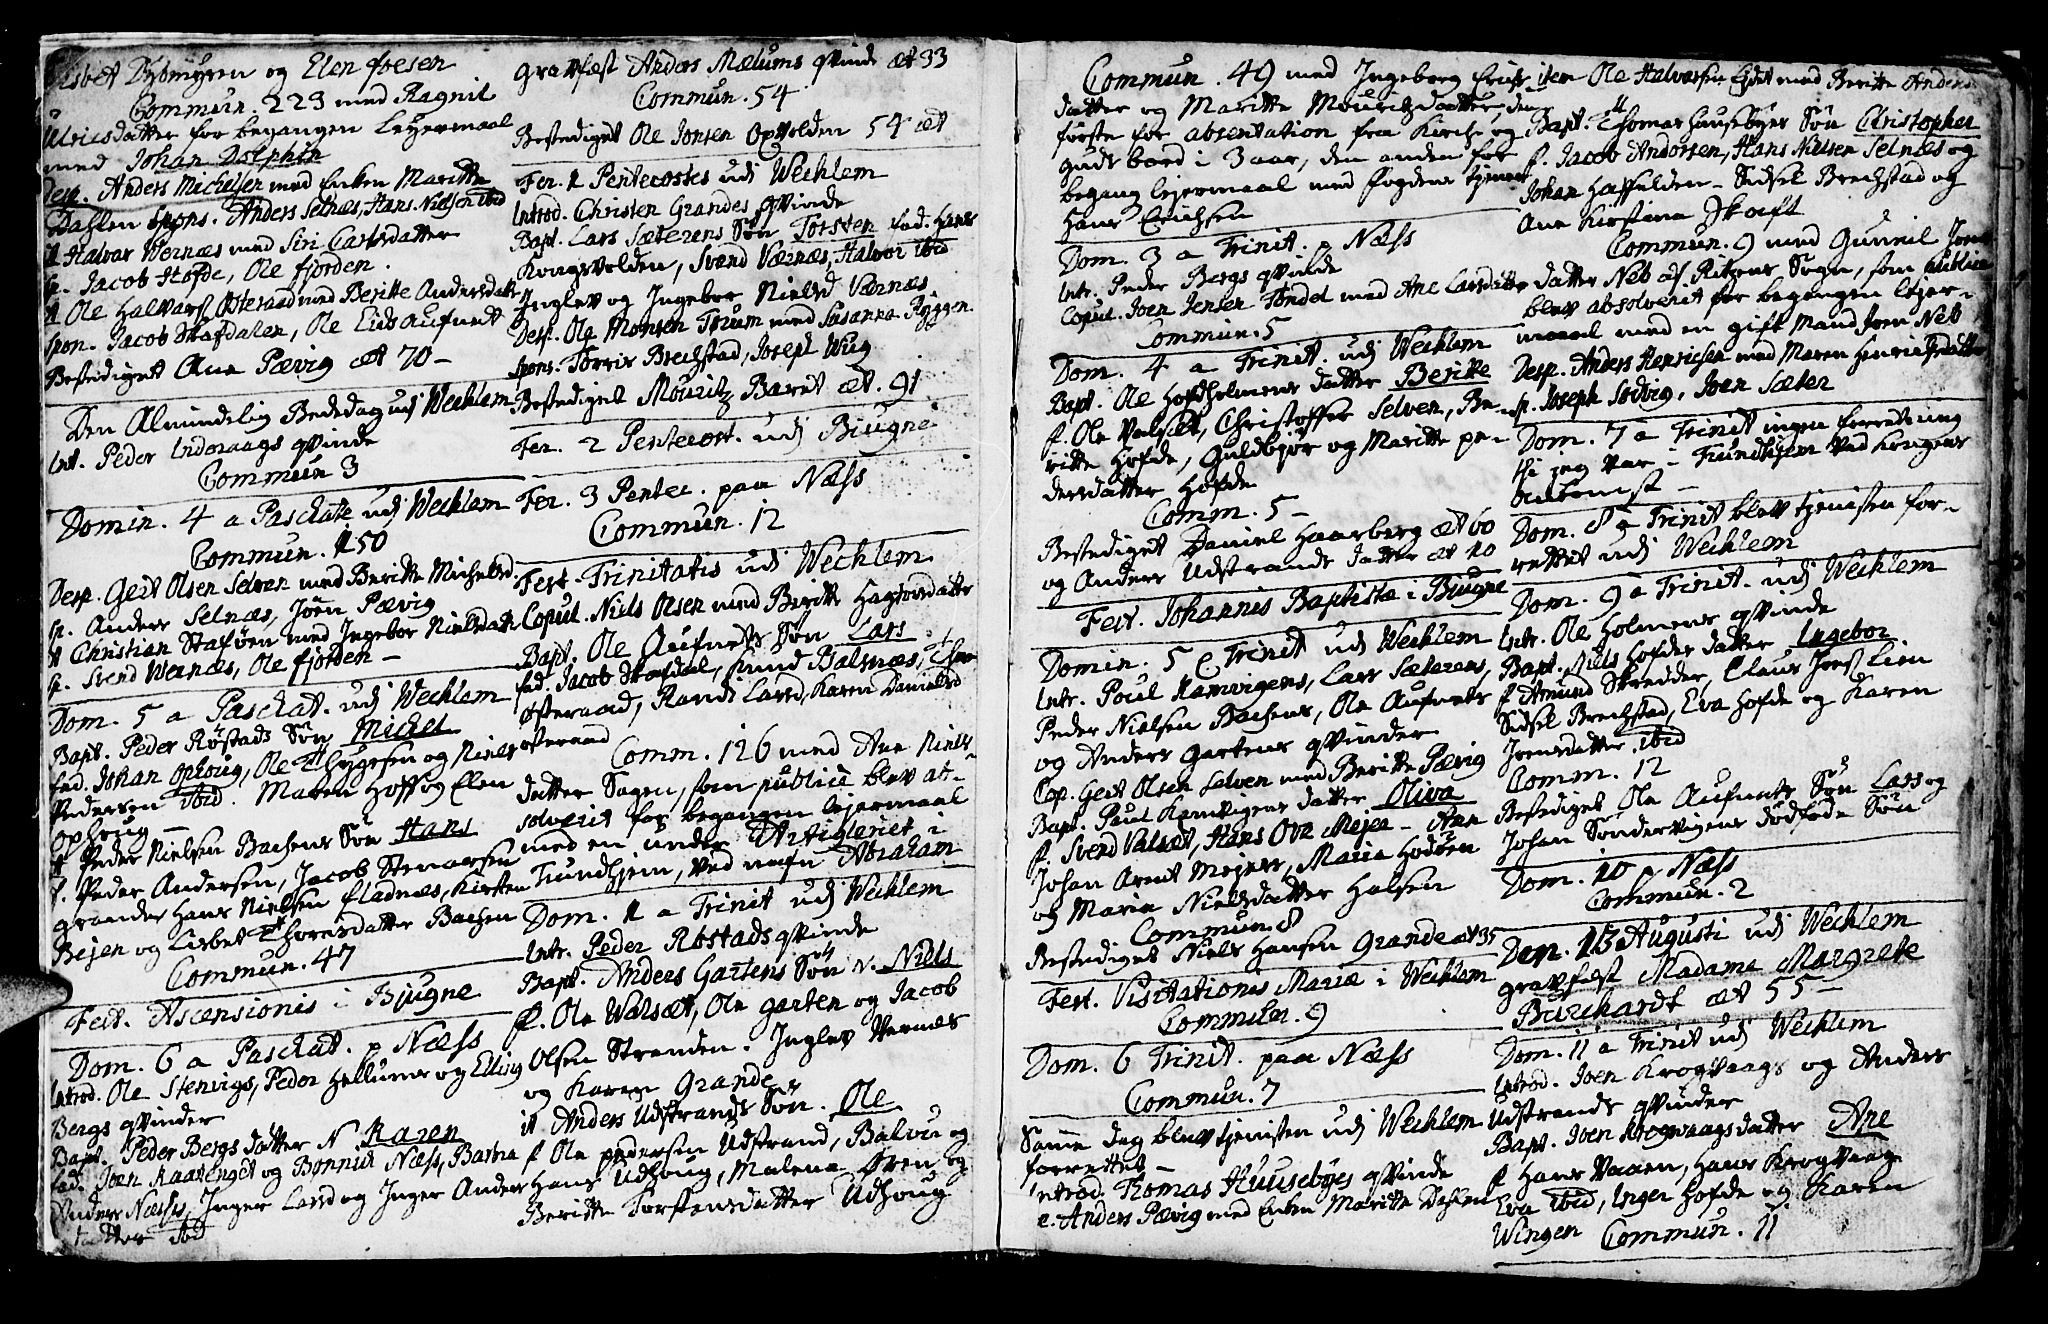 Lisbet Dybmyren og Elen foesen
Commun. 223 med Ragnil
Ulrichsdatter for begangen Leyermaal
med Johan Dolphin
Desp. Anders Michelsen med Enken Maritte
Dahlen spons. Anders Selnæs, Hans Nielsen ibid
it Halvar Wernæs med Siri Carlsdatter
sp. Jacob Hofde, Ole fjorden.
it Ole Halvarss Østeraad med Beritte Andersdatter
spon. Jacob Skafdalen, Ole Eids Aufnedt
Bestediget Ane Pævig æt 70 –
Den Almindelig Bededag udj Wechlem
Int. Peder Indraags qvinde
Commun 3
Domin. 4 a Paschate udj Wechlem
Commun. 150
Desp. Gert Olsen Selven med Beritte Michelsd.
sp. Anders Selnæs, Jøen Pævig
it Christian Staføen med Ingebor Nielsdatt
sp. Svend Wernæs, Ole fjorden –
Dom. 5 a Paschat. udj Wechlem
Bapt. Peder Røstads Søn Michel
fad. Johan Ophoug, Ole Thygesen og Niels
Pedersen ibid. Maren Hoff og Elen
Ophoug –
it Peder Nielsen Bachens Søn Hans
f. Peder Andersen, Jacob Stenarsen
grander Hans Nielsen fladnæs, Kirsten
Bejen og Lisbet Thoresdatter Bachen
Commun. 47
Fest. Ascensionis i Bjugne
Dom. 6 a Paschat. p Næss
Introd. Ole Stenvigs, Peder Hellums og Elling
Bergs qvinder
Bapt. Peder Bergs datter N. Karen
fad. Joen Raasenget og Bonnick Næss, Barbra
Anders Næsses, Inger Larsd og Inger Anders
datter ibid
Gravfæst Anders Mælums qvinde æt 33
Commun. 54
Bestediget Ole Jonsen Opvolden 54 æt
Fer. 1 Pentecostes udj Wechlem
Introd. Christen Grandes qvinde
Bapt. Lars Sæterens Søn Torsten fad. Hans
Kongsvolden, Svend Værnæs, Halvor ibid
Inglev og Ingebor Nielsd Værnæs
Desp. Ole Monsen Tørum med Susanna Ryggen
spons. Torris Brechstad, Joseph Wug
Bestediget Mouritz Baret æt. 91
Fer. 2 Pentecost. udj Biugne
Fer. 3 Pentec. paa Næss
Commun. 12
Fest. Trinitatis udj Wechlem
Copul. Niels Olsen med Beritte Hagtorsdatter
Bapt. Ole Aufnedts Søn Lars
fad. Jacob Skafdal, Knud Balsnæs,
Østeraad, Randi Larsd, Karen Danielsd
østeraad
Comm. 126 med Ane Niels
datter Sagen, som publicè blev ab-
solverit for begangen lejermaal
med en under Artigleriet i
Trundhjem, ved nafn Abraham
Dom. 1 a Trinit udj Wechlem
Intr. Peder Røstads qvinde
Bapt. Anders Gartens Søn N. Niels
f. Ole Walsæt, Ole garten og Jacob
Olsen Stranden. Inglev Wernæs
og Karen Grande
it Anders Udstrands Søn. Ole
f Ole pedersen Udstrand, Balvu og
Hans Udhoug, Malena Øren og
Beritte Torstensdatter Udhoug
Commun. 49 med Ingeborg Erichs
datter og Maritte Mouritzdatter, den
første for absentation fra Kirche og
guds bord i 3 aar, den anden for
begang lejermaal med fogdens tjener
Hans Erichsen
Dom. 3 a Trinit. p Næss
Intr. Peder Bergs qvinde
Copul. Joen Jensen Tøndel med Ane Larsdatter
Commun. 5
Dom. 4 a Trinit. udj Wechlem
Bapt. Ole Hofdholmens datter Beritte
f. Ole Valsæt, Christoffer Selven, Be-
ritte Hofde, Guldbjør og Maritte pe-
dersdatter Hofde
Comm. 5 –
Bestediget Daniel Haarberg æt 60
og Anders Udstrands datter æt 10
Fest. Johannis Baptistæ i Biugne
Domin. 5 a Trinit udj Wechlem
Intr. Poul Ramvigens, Lars Sæterens,
Peder Nielsen Bachens, Ole Aufnets
og Anders Gartens qvinder
Cop. Gert Olsen Selven med Beritte Pævig
Bapt. Paul Ramvigens datter Oliva
f. Svend Valsæt, Hans Ove Mejer – Ane
Johan Arent Mejers, Maria Hodøen
og Maria Nielsdatter Halsen
Commun. 8
Bestediget Niels Hansen Grande æt 35
Fest. Visitationis Mariæ i Wechlem
Commun. 9
Dom. 6 Trinit. paa Næss
Commun. 7
Samme dag blev tjenisten udj Wechlem
forrettet –
Introd. Thomas Huusebyes qvinde
c. Anders Pævig med Enken Maritte Dahlen
item Ole Halvorsen Eidet med Beritte Anders
Bapt. Thomas Hausebyes Søn Christopher
f. Jacob Andersen, Hans Nielsen Selnæs og
Johan Haffelden – Sidsel Brechstad og
Ane Kirstina Skaft
Commun. 9 med Gunnil Jons
datter Neb af Ritzens Sogn, som publice
blev absolverit for begangen lejer-
maal med en gift Mand Joen Neb
Desp. Anders Henrichsen med Maren Henrichsdatter
sp. Joseph Sølvig, Joen Sæter
Dom. 7 a Trinit ingen forretning
thi jeg var i Trundhjem ved Kongens
ankomst –
Dom. 8 a Trinit blev tjenisten for-
rettet udj Wechlem
Dom. 9 a Trinit. udj Wechlem
Intr. Ole Holmens qvinde
Bapt. Niels Hofdes datter Ingebor
f Amund Skredder, Claus Jonss Lien
Sidsel Brechstad, Eva Hofde og Karen
Joensdatter ibid
Comm. 12
Bestediget Ole Aufnets Søn Lars og
Johan Søndervigens dødfødde Søn
Dom. 10 p Næss
Commun. 2
Den 13 Augusti udj Wechlem
gravfæst Madame Margrete
Burchardt æt 55 –
Dom. 11 a Trinit udj Wechlem
Introd. Joen Krogvaags og Anders
Udstrands qvinder
Bapt. Joen Krogvaags datter Ane
f Hans Vaaen, Hans Krogvaag
Eva ibid, Inger Hofde og Karen
Wingen Commun. 11